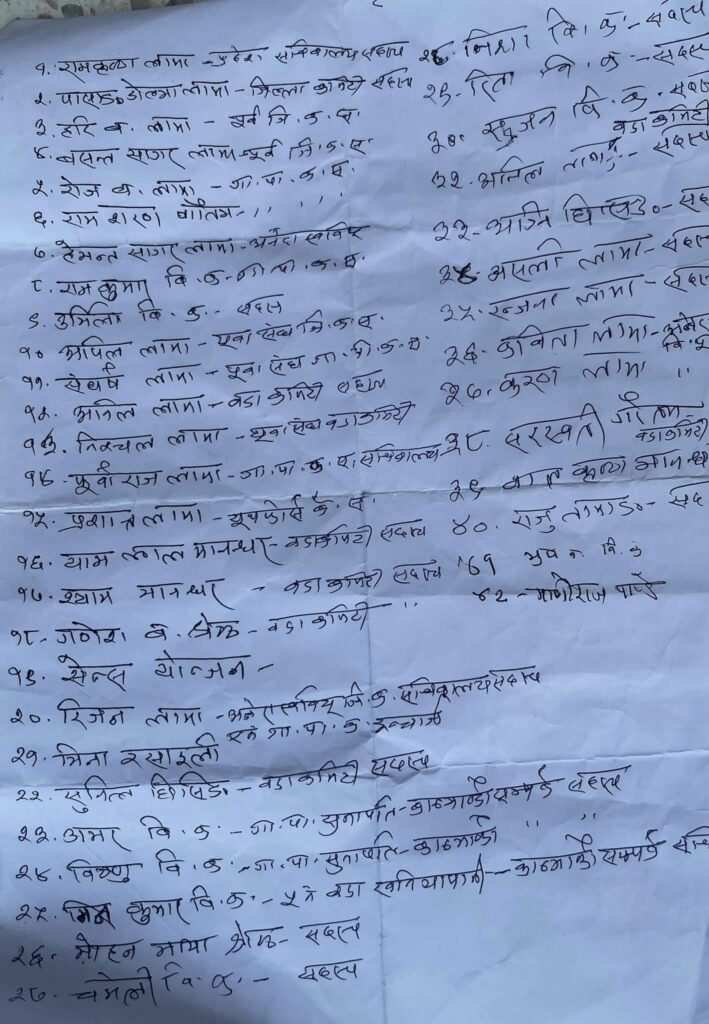 १. रामकृष्ण लामा - प्रदेश सचिवालय सदस्य
२. पासाङ डोल्मा लामा - जिल्ला कमिटी सदस्य
३. हरि ब. लामा - पूर्व जि. क. स.
४. बसन्त सागर लामा - पूर्व जि. क. स.
५. रोज ब. लामा - गा. पा. क. स.
६. राम शरण गौतम - " " " "
७. हेमन्त सागर लामा - अनेरास्ववियु
८. राम कुमार वि. क. - गा. पा. क. स.
९. उर्मिला वि. क. - सदस्य
१० अपिल लामा - युवा संघ जि. क. स.
११. संघर्ष लामा - युवा संघ गा. पा. क. स.
१२. अनिल लामा - वडा कमिटी सदस्य
१३. निश्चल लामा - युवा संघ वडा कमिटी
१४. पूर्वा राज लामा - गा. पा. क. स. सचिवालय
१५. प्रशान्त लामा - युथफोर्स के. स.
१६. याम लाल मानन्धर - वडा कमिटी सदस्य
१७. श्याम मानन्धर - वडा कमिटी सदस्य
१८. गणेश ब. श्रेष्ठ - वडा कमिटी "
१९. सेन्स योन्जन -
२०. रिजन लामा - अनेरास्ववियु जि. क. सचिवालय सदस्य
एवं गा. पा. क. इन्चार्ज
२१. मिना रसाइली
२२. सुनिल घिसिङ - वडा कमिटी सदस्य
२३. अमर वि. क. - गा. पा. सुनापति - काठमाण्डौ सम्पर्क सदस्य
२४. विष्णु वि. क. - गा. पा. सुनापति - काठमाण्डौ " "
२५. कुमार वि. क. - ५ नं वडा खनियापानी - काठमाण्डौ सम्पर्क
२६. मोहन माया श्रेष्ठ - सदस्य
२७. चमेली वि. क. - सदस्य
२८. निशा वि. क. - सदस्य
२९. रिता वि. क. - सदस्य
३०. सुजन वि. क. - सदस्य
वडा कमिटी
३२. अनिल लामा - सदस्य
३३. अग्नि घिसिङ - सदस्य
३४. असली लामा - सदस्य
३५. रन्जना लामा - सदस्य
३६. कविता लामा -
३७. करण लामा "
३८. सरस्वती गौतम -
वडा कमिटी
३९. बाल कृष्ण मानन्धर
४०. राजु तामाङ - सदस्य
४१ वि. क.
४२ - पाण्डे